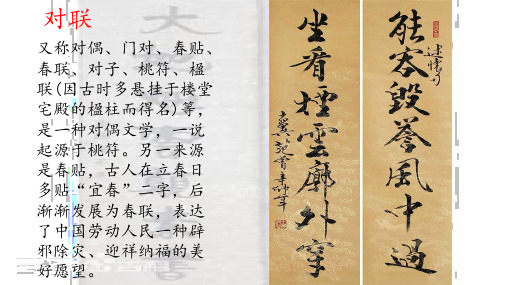 对联
又称对偶、门对、春贴、
春联、对子、桃符、楹
联(因古时多悬挂于楼堂
宅殿的楹柱而得名)等，
是一种对偶文学，一说
起源于桃符。另一来源
是春贴，古人在立春日
多贴“宜春”二字，后
渐渐发展为春联，表达
了中国劳动人民一种辟
邪除灾、迎祥纳福的美
好愿望。
能容毁誉风中过
坐看烟云廓外穿